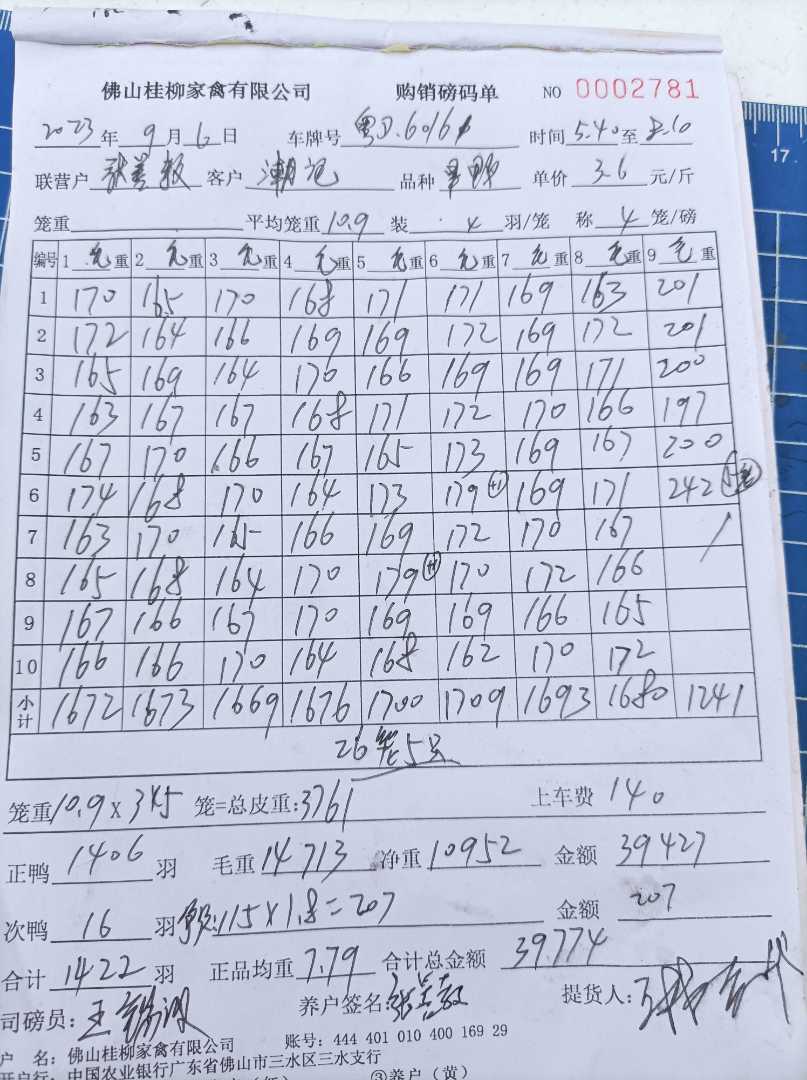 佛山桂柳家禽有限公司 购销磅码单 NO 0002781
2023年9月6日 车牌号 粤J.6016 时间5.40至8.10
联营户 张善教 客户 潮记 品种 单价 3.6 元/斤
笼重 平均笼重10.9 装 4 羽/笼 称 4 笼/磅
编号 1 毛重 2 毛重 3 毛重 4 毛重 5 毛重 6 毛重 7 毛重 8 毛重 9 毛重
1 170 165 170 168 171 171 169 163 201
2 172 164 166 169 169 172 169 172 201
3 165 169 164 170 166 169 169 171 200
4 163 167 167 168 171 172 170 166 197
5 167 170 166 167 165 173 169 167 200
6 174 168 170 164 173 179 +1 169 171 242
7 163 170 165 166 169 172 170 167
8 165 168 164 170 179 +1 170 172 166
9 167 166 167 170 169 169 166 165
10 166 166 170 164 168 162 170 172
小计 1672 1673 1669 1676 1700 1709 1693 1680 1241
26笼5只
笼重10.9X345 笼=总皮重:3761 上车费 140
正鸭 1406 羽 毛重 14713 净重 10952 金额 39427
次鸭 16 羽 115X1.8=207 金额 207
合计 1422 羽 正品均重 7.79 合计总金额 39.774
司磅员: 养户签名:张善教 提货人:
户 名: 佛山桂柳家禽有限公司 账号: 444 401 010 400 169 29
开户行: 中国农业银行广东省佛山市三水区三水支行
③养户（黄）